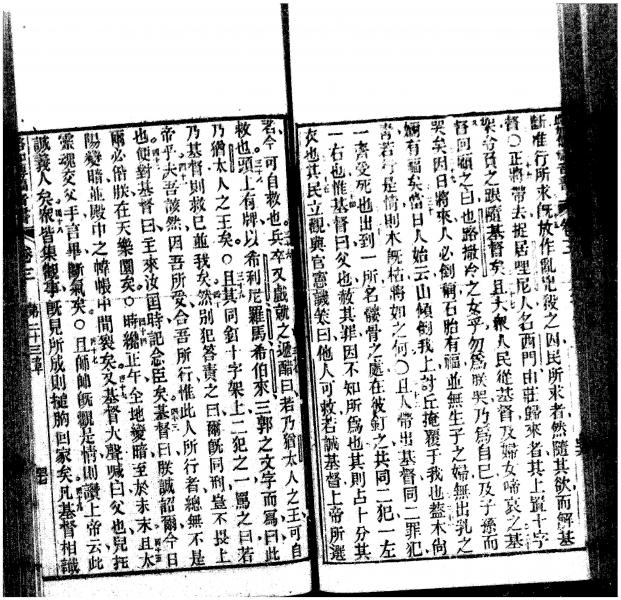 斷准行所求既放作亂兇彼之囚民所求者然隨其欲而解基
督○正將帶去捉居哩尼人名西門由莊歸來者其上置十字
架令負之跟隨基督矣且大衆人民從基督及婦女啼哀之基
督回顧之曰也路撒冷之女乎勿爲朕哭乃爲自己及子孫而
哭矣因日將來人必倒祠石胎有福並無生子之婦無出乳之
嬭有福矣當日人始云山傾倒我上討丘掩覆于我也蓋木尙
靑若是情則木既枯將如之何○且人帶出基督同二罪犯
一齊受死也出到一所名髏骨之處在彼釘之共同二犯一左
一右也惟基督曰父也赦其罪因不知所爲也其則占十分其
衣也其民立觀與官憲譏笑曰他人可救若誠基督上帝所選
者今可自救也兵卒又戲就之遞醋曰若乃猶太人之王可自
救也頭上有牌以希利尼羅馬希伯來三郭之文字而寫曰此
乃猶太人之王矣○且其同釘十字架上二犯之一罵之曰若
乃基督則救己並我矣然別犯答責之曰爾既同刑豈不畏上
帝乎夫吾該然因吾所受合吾所行惟此人所行者總無不是
也便對基督曰主來汝國時記念臣矣基督曰朕誠詔爾今日
爾必偕朕在天樂園矣○時纔正午全地變暗至於未末且太
陽變暗並殿中之幃帳中間裂矣又基督大聲喊曰父也兒托
靈魂交父手言畢斷氣矣○且師師既觀是情則讚上帝云此
誠義人矣衆皆集觀事既見所成則搥胸回家矣凡基督相識
路加傳福音書 卷三 第二十三章